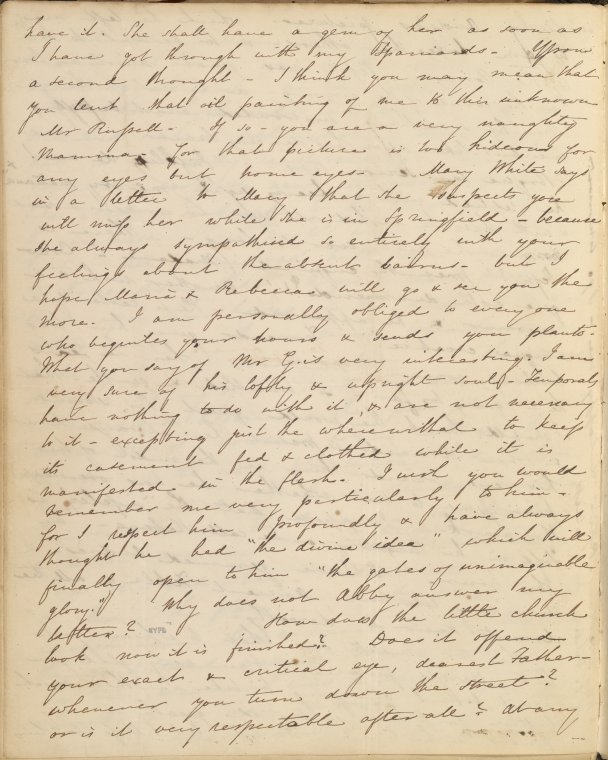 have it. She shall have a gem of her as soon as
I have got through with my Spaniards. Upon
a second thought - I think you may mean that
you lent that oil painting of me to this unknown
Mr Russell. If so - you are a very naughty
Mamma - for that picture is too hideous for
any eyes but home eyes. Mary White says
in a letter to Mary that she suspects you
will miss her while she is in Springfield - because
she always sympathised so entirely with your
feelings about the absent bairns - but I
hope Maria & Rebecca will go & see you the
more. I am personally obliged to every one
who beguiles your hours & sends you plants.
What you say of Mr G. is very interesting. I am
very sure of his lofty & upright soul - Temporals
have nothing to do with it, & are not necessary
to it - excepting just the wherewithal to keep
its casement fed & clothed while it is
manifested in the flesh. I wish you would
remember me very particularly to him -
for I respect him profoundly & have always
thought he had "the divine idea" which will
finally open to him "the gates of unimaginable
glory." Why does not Abby answer my
letter? NYPL How does the little church
look now it is finished? Does it offend
your exact & critical eye, dearest Father -
whenever you turn down the street?
or is it very respectable after all? At any